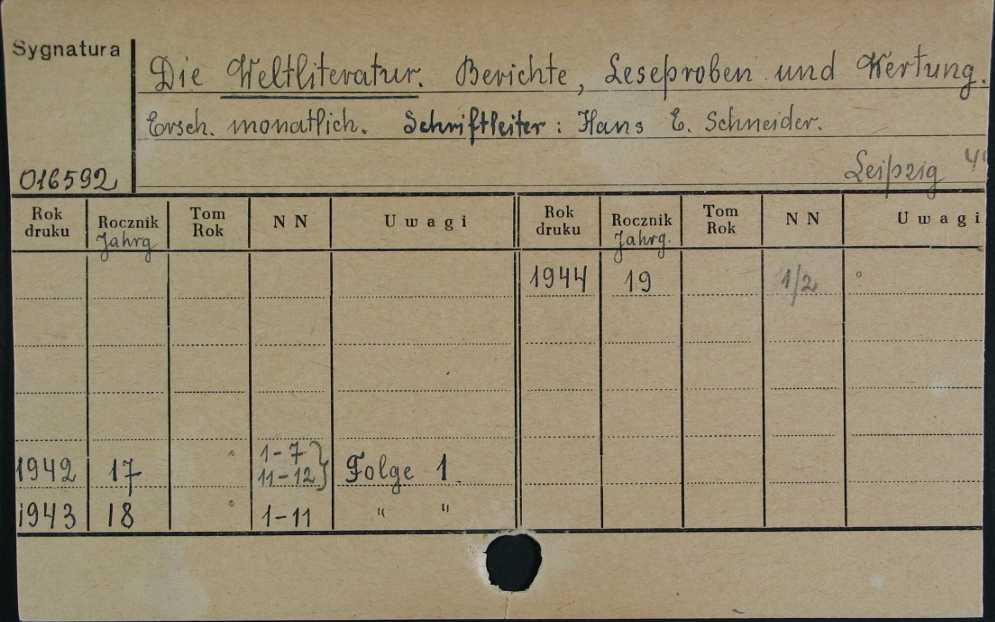 Sygnatura
Die Weltliteratur. Berichte, Leseproben und Wertung.
Ersch. monatlich. Schriftleiter: Hans E. Schneider.
016592 Leipzig 4°
Rok druku Rocznik Jahrg Tom Rok NN Uwagi Rok druku Rocznik Jahrg. Tom Rok NN Uwagi
1944 19 1/2 "
1942 17 " 1-7 } Folge 1.
11-12
1943 18 " 1-11 " "